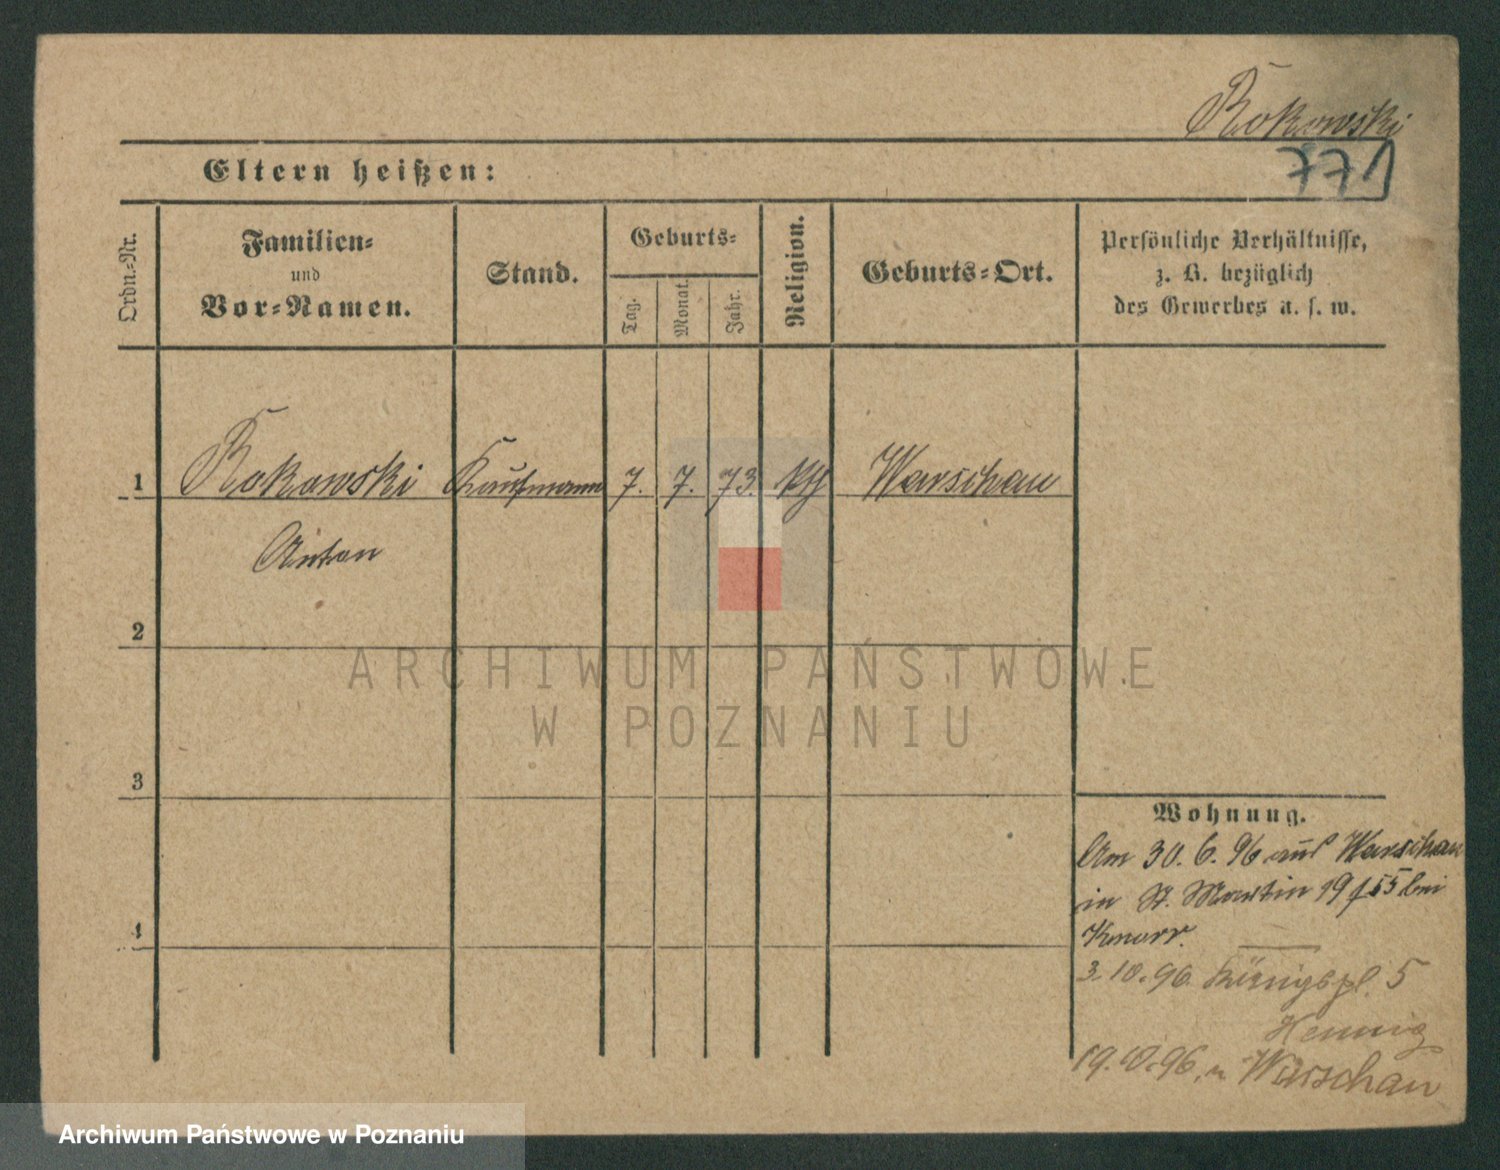 Rokowski
771
Eltern heißen:
Ordn.-Nr.
Familien-
und
Vor-Namen.
Stand.
Geburts-
Tag.
Monat.
Jahr.
Religion.
Geburts-Ort.
Persönliche Verhältnisse,
z. B. bezüglich
des Gewerbes u. s. w.
1 Rokowski Kaufmann 7. 7. 73. kth Warschau
Anton
2
ARCHIWUM PAŃSTWOWE
W POZNANIU
3
Wohnung.
Am 30. 6. 96 aus Warschau
in St. Martin 19 bei
Knorr.
4
3. 10. 96. Königspl. 5
Hennig
19. 10. 96. n. Warschau
Archiwum Państwowe w Poznaniu